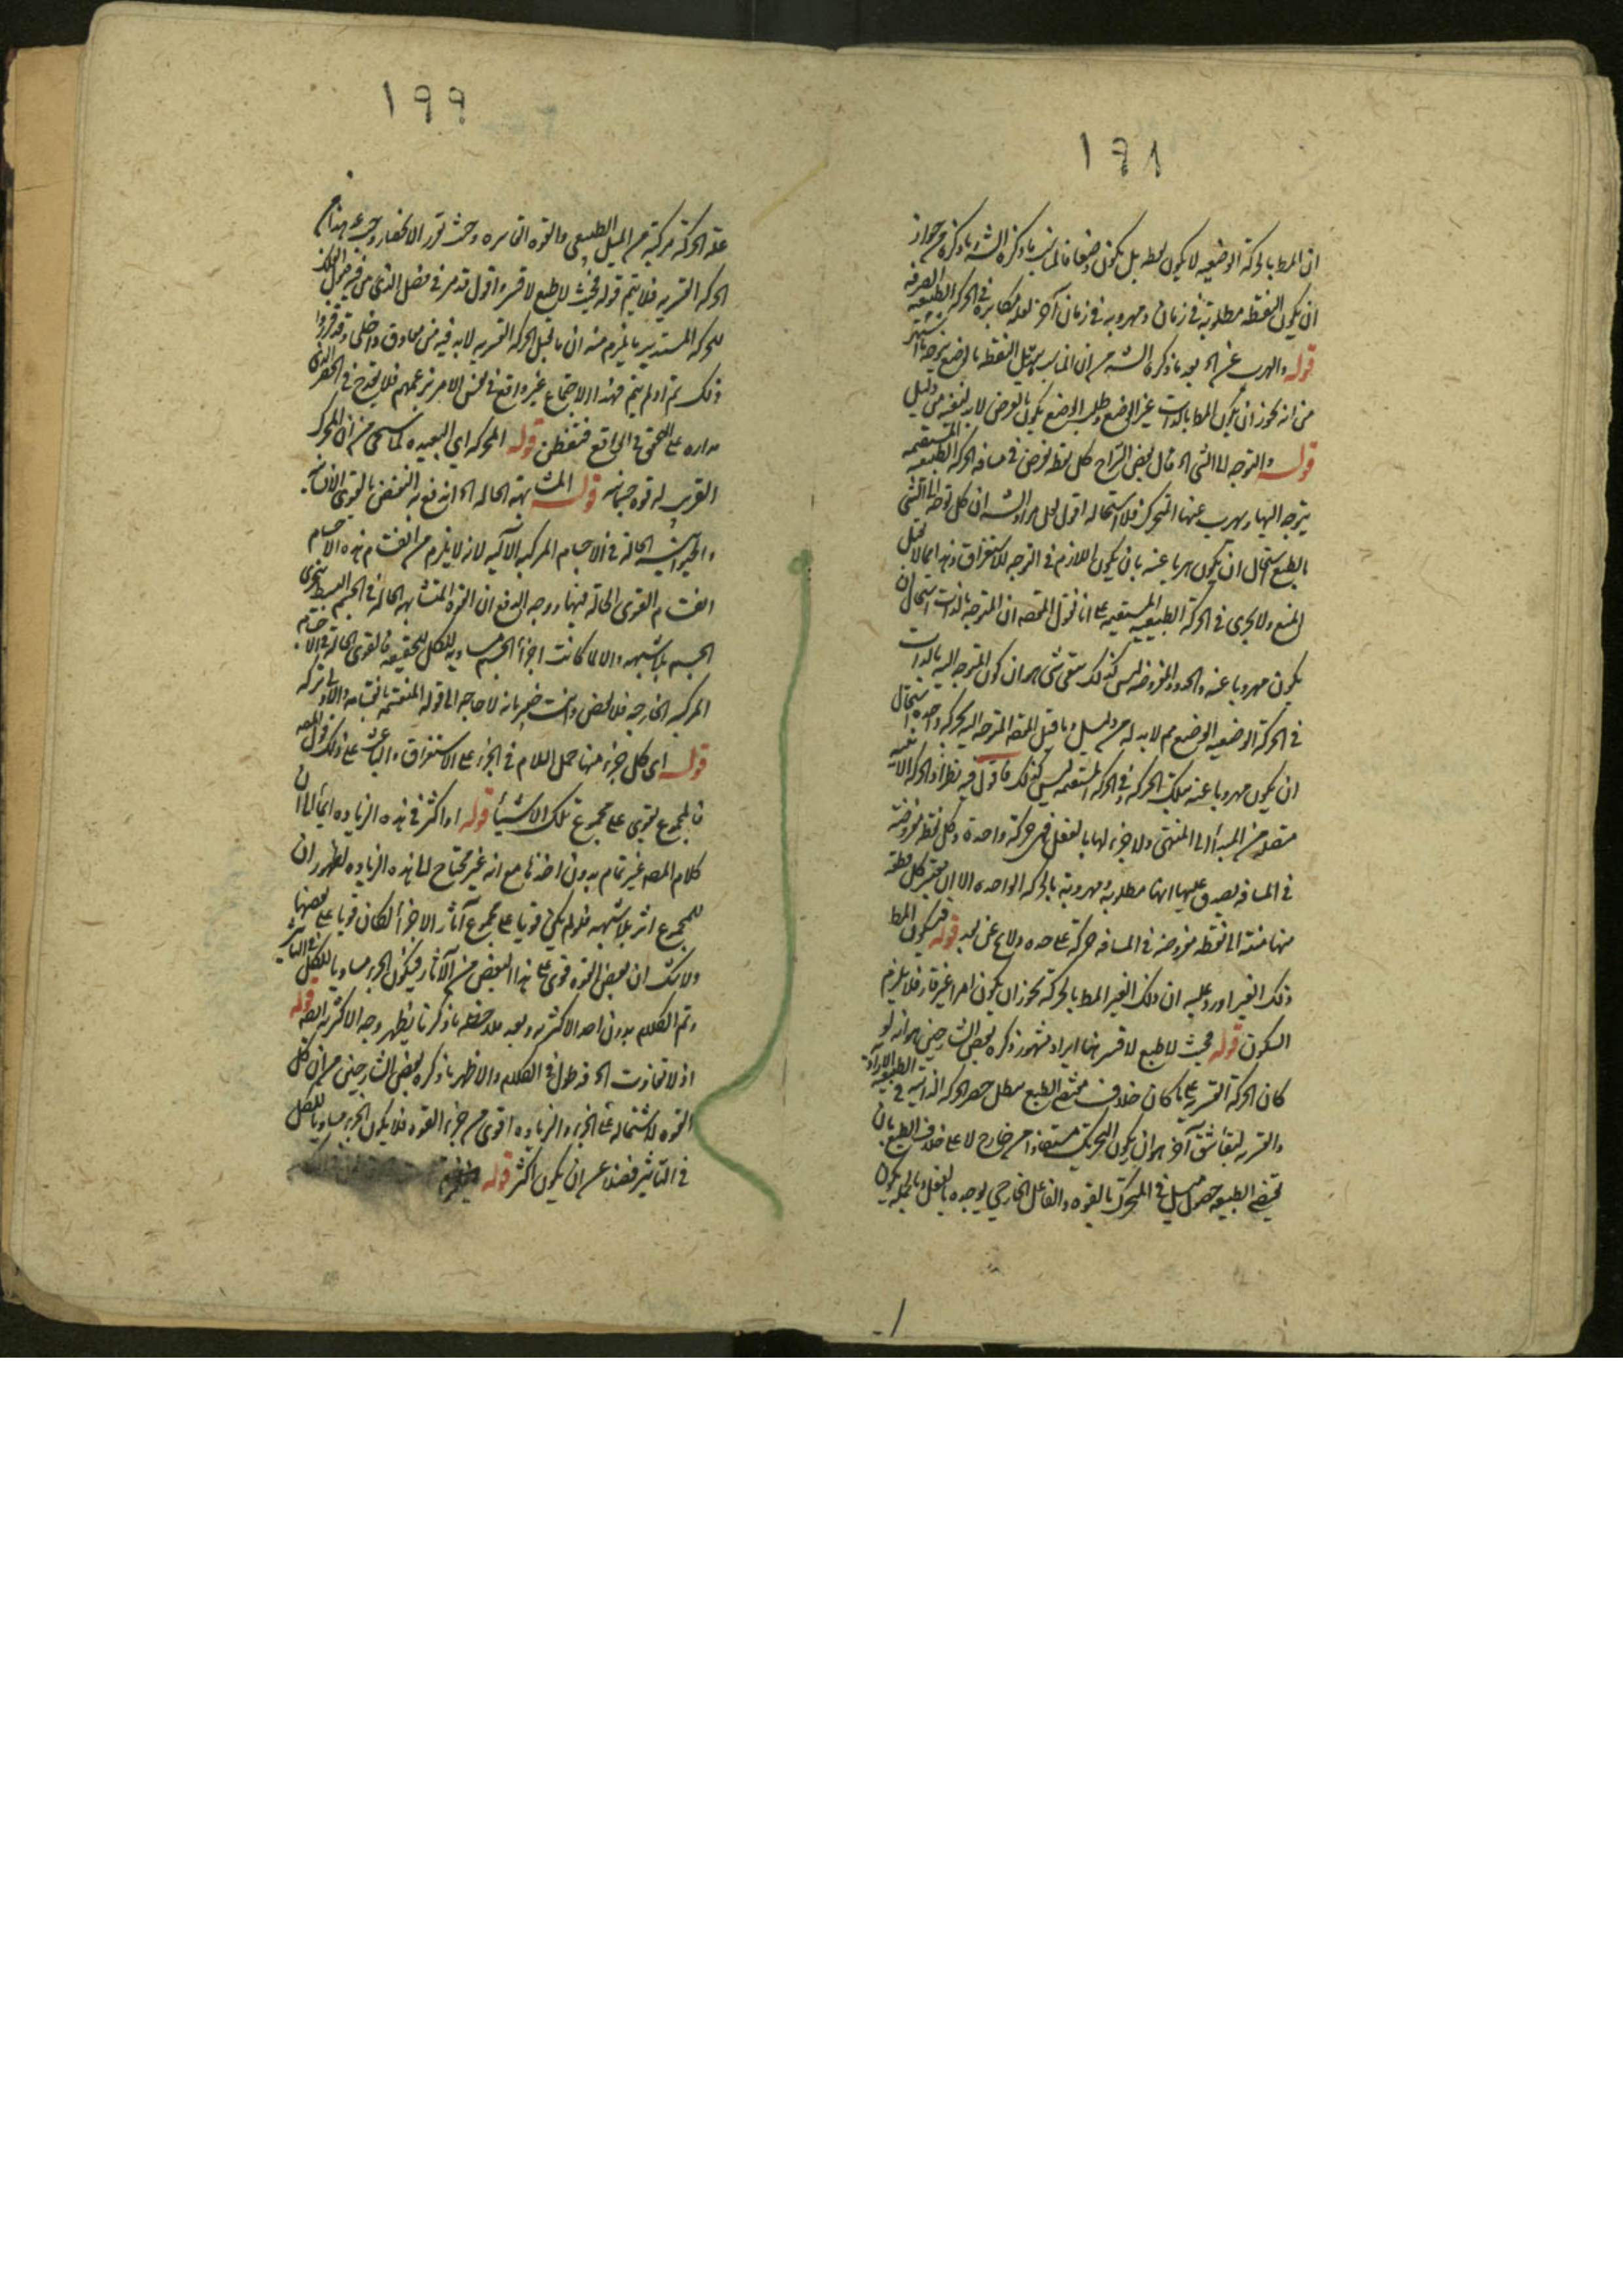 ١٩٨
ان المط بالحركة الوضعية لا يكون نقطه بل يكون وضعا فالمناسب ما ذكره الش ما ذكره من جواز
ان يكون النقطة مطلوبة في زمان ومهروبة في زمان آخر لعله مكابرة في الحركة الطبيعية الصرفة
قوله والهرب عن اه بعد ما ذكره الش من ان المناسب تبديل النقطة بالوضع يتوجه ما اشتهر
من انه يجوز ان يكون المط بالذات غير الوضع وطلب الوضع يكون بالعرض لا بد لنفيه من دليل
قوله والتوجه الى الشي اه قال بعض الشراح كل نقطة تفرض في مسافة الحركة الطبيعية المستقيمة
يتوجه اليها ويهرب عنها المتحرك فلا استحالة اقول لعل مراد الش ان كل توجه الى الشي
بالطبع استحال ان يكون هربا عنه بان يكون اللازم في التوجه للاستغراق وهذا مما لا يقبل
المنع ولا يجرى في الحركة الطبيعية المستقيمة على انا نقول المقصد ان المتوجه بالذات استحال ان
يكون مهروبا عنه والحدود المفروضة ليس كذلك بقى شي هو ان كون المتوجه اليه بالذات
في الحركة الوضعية الوضع مم لا بد له من دليل وما قيل المقصد المتوجه اليه بحركة واحدة استحال
ان يكون مهروبا عنه بتلك الحركة وفي الحركة المستقيمة ليس كذلك فاقول فيه نظر اذ الحركة الاينية
متصلة من المبدأ الى المنتهى ولا جزء لها بالفعل فهي حركة واحدة وكل نقطة مفروضة
في المسافة يصدق عليها انها مطلوبة ومهروبة بالحركة الواحدة الا ان يعتبر كل قطعة
منها منتهية الى نقطة مفروضة في المسافة حركة على حدة ولا يخ عن بعد قوله فيكون المط
ذلك الغير اورد عليه ان ذلك الغير المط بالحركة يجوز ان يكون امرا غير قار فلا يلزم
السكون قوله فحيث لا طبع لا قسر ههنا ايراد مشهور ذكره بعض الشارحين هو انه لو
كان الحركة القسرية على ما كان خلاف مقتضى الطبع بطل حصر الحركة الذاتية في الطبيعية والارادية
والقسرية لبقاء شق آخر هو ان يكون التحريك مستفادا من خارج لا على خلاف الطبع بان
يقتضى الطبيعة حصول ميل في المتحرك بالقوة والفاعل الخارجي يوجده بالفعل وبالجملة يكون
١٩٩
علة الحركة مركبة من الميل الطبيعي والقوة القاسرة وحيث تقرر الانحصار وجب عد هذا من
الحركة القسرية فلا يتم قوله فحيث لا طبع لا قسر واقول قد مر في فصل الذى من فيه قبول الفلك
للحركة المستديرة ما يلزم منه ان ما قبل الحركة القسرية لا بد فيه من معاوق داخلى وقد قرروا
ذلك ثم او لم يتم فهذا الاجتماع غير واقع في نفس الامر بزعمهم فلا يقدح في الحصر الذى
مداره على التحقق في الواقع فتفطن قوله المحركة اى البعيدة لما سيجى من ان المحرك
القريب له قوة جسمانية قوله المتشابهة الحالة اه اندفع به النقض بالقوى الانسانية
والحيوانية الحالة في الاجسام المركبة الآلية لانه لا يلزم من انقسام هذه الاجسام
انقسام القوى الحالة فيها ووجه الدفع ان القوة المتشابهة الحالة في الجسم البسيط يتجزى
الجسم بلا شبهة والا لما كانت اجزاء الجسم مساوية للكل في الحقيقة فالقوى الحالة في الاجسام
المركبة الخارجة فلا نقض وانت خبير بانه لا حاجة الى قوله المنقسمة بانقسامه والاولى تركه
قوله اى كل جزء منها حمل اللام في الجزء على الاستغراق والباعث على ذلك قول المصه
فالمجموع يقوى على مجموع تلك الاشياء قوله او اكثر في هذه الزيادة ايماء الى ان
كلام المصه غير تمام بدون اخذها مع انه غير محتاج الى هذه الزيادة لظهور ان
للمجموع اثر بلا شبهة فلو لم يكن قويا على مجموع آثار الاجزاء لكان قويا على بعضها
ولا شك ان بعض القوة قوى على هذا البعض من الآثار فيكون الجزء مساويا للكل في التأثير
وتم الكلام بدون اخذ الاكثرية وبعد ملاحظة ما ذكرنا يظهر وجه الاكثرية ايضا قوله
اذ لا تفاوت اه فد طول في الكلام والاظهر ما ذكره بعض الشارحين من ان كل
القوة لاشتماله على الجزء والزيادة اقوى من جزء القوة فلا يكون الجزء مساويا للكل
في التأثير فضلا عن ان يكون اكثر قوله